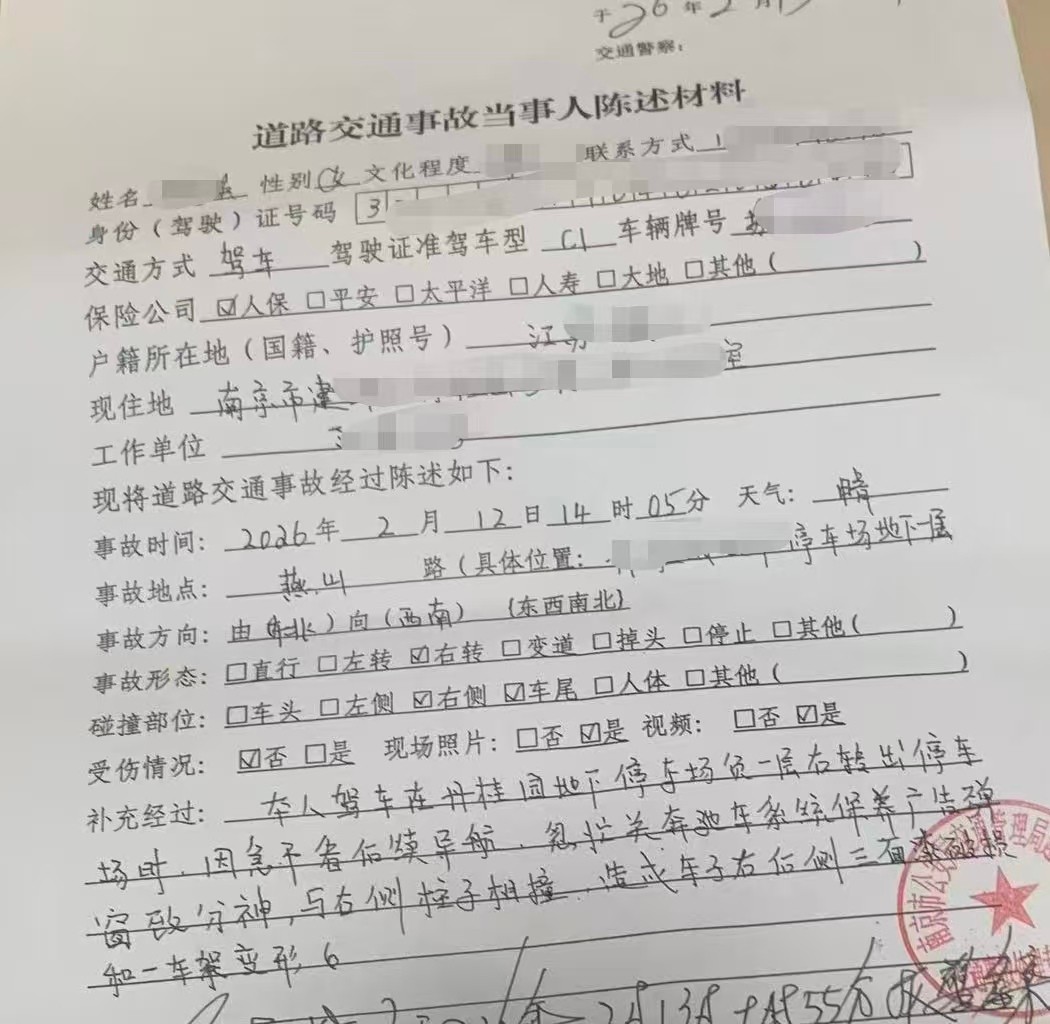 于26年2月
交通警察：
道路交通事故当事人陈述材料
姓名 性别 女 文化程度 联系方式 1
身份（驾驶）证号码 3
交通方式 驾车 驾驶证准驾车型 C1 车辆牌号 苏
保险公司 ☑人保 □平安 □太平洋 □人寿 □大地 □其他（ ）
户籍所在地（国籍、护照号） 江
现住地 南京市建 室
工作单位
现将道路交通事故经过陈述如下：
事故时间： 2026年 2 月 12 日 14 时 05分 天气： 晴
事故地点： 燕山 路（具体位置： 停车场地下一层
事故方向：由（东北）向（西南） {东西南北}
事故形态：□直行 □左转 ☑右转 □变道 □掉头 □停止 □其他（ ）
碰撞部位：□车头 □左侧 ☑右侧 ☑车尾 □人体 □其他（ ）
受伤情况： ☑否 □是 现场照片：□否 ☑是 视频： □否 ☑是
补充经过： 本人驾车在丹桂园地下停车场负一层右转出停车
场时，因急于看后续导航，忽拦关奔驰车系统保养广告弹
窗致分神，与右侧柱子相撞，造成车子右后侧三面漆破损
和一车架变形。
南京市公 管理局